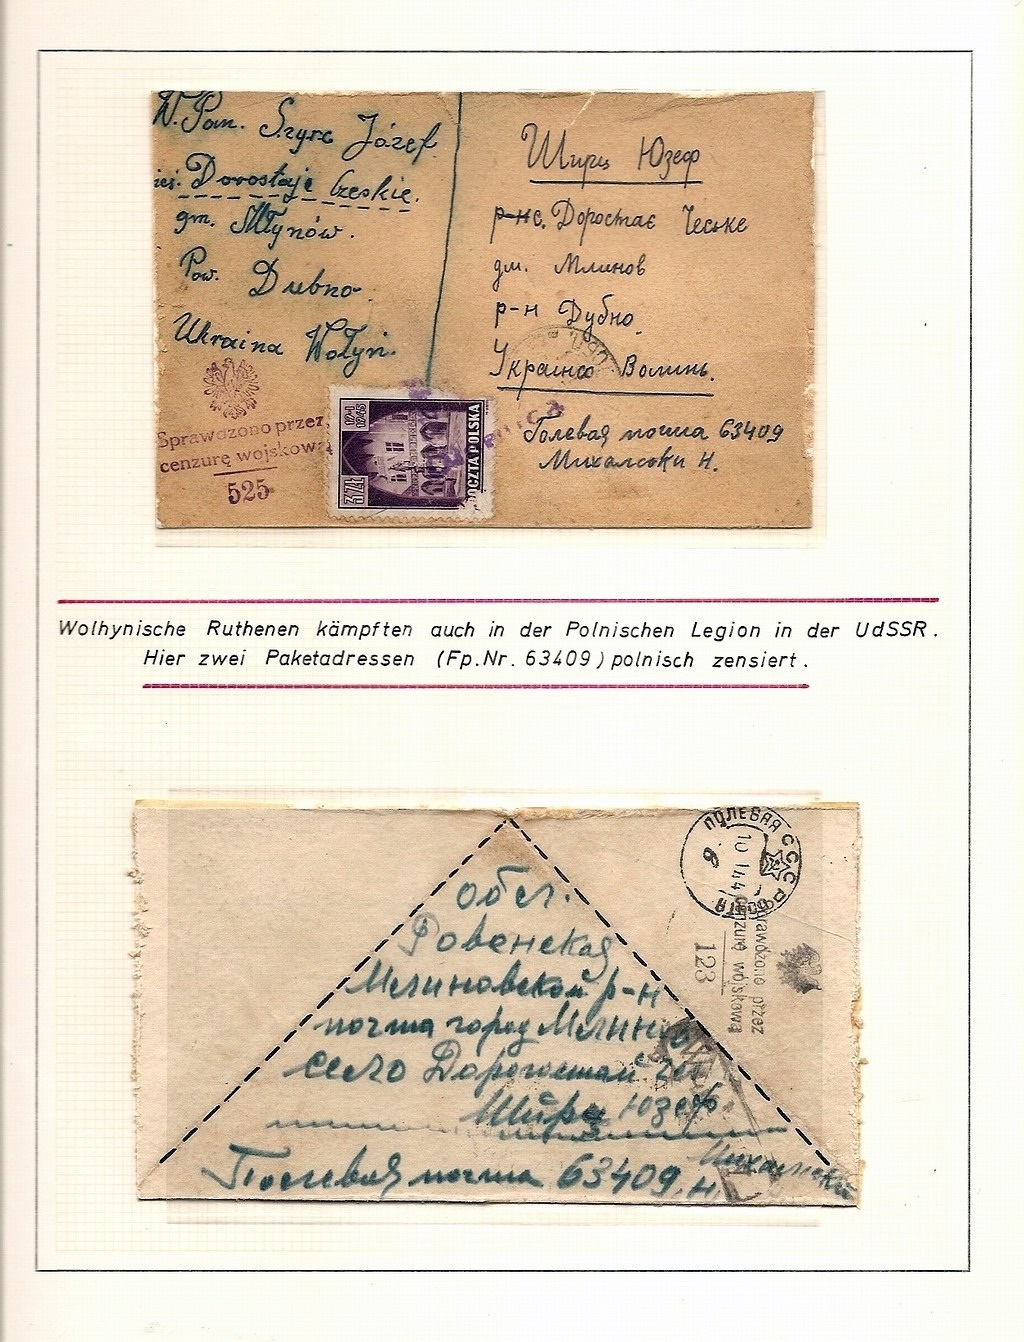 W. Pan. Szyrc Józef.
Dorostaje Czeskie.
gm. Młynów.
Pow. Dubno.
Ukraina Wołyń.
Sprawdzono przez
cenzurę wojskową
525
12-I
1945
3 ZŁ
POCZTA POLSKA
Ширц Юзеф
р-не. Доростає Чеське
дм. Млинов
р-н Дубно.
Україна Волинь.
Полевая почта 63409
Михалски Н.
Wolhynische Ruthenen kämpften auch in der Polnischen Legion in der UdSSR.
Hier zwei Paketadressen (Fp.Nr. 63409) polnisch zensiert.
ПОЛЕВАЯ
СССР
ПОЧТА
10 1 44
6
Sprawdzono przez
cenzurę wojskową
123
обл.
Ровенская
Млиновской р-н
почта город Млинов
село Дорогостай
Ширц Юзеф
Полевая почта 63409 н.
Михалский